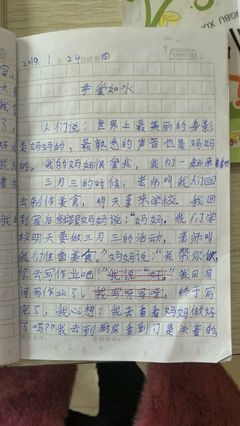 2019 1月24日 四
母爱如水
人们说:世界上最美丽的身影
是妈妈的,最熟悉的声音也是妈妈
的。我的妈妈很爱我,我们一起来看看吧
三月三的时候,老师叫我们回
去制作美食,明天拿来学校。我回
到家后跟妈妈说:“妈妈,我们学
校明天要做三月三的活动,老师叫
我们准备美食。”妈妈说:“我帮你做,
您去写作业吧!”我说:“好。”我回房
间写作业了,我写呀写呀,终于写
完了,我心想:我去看看妈妈做好
了吗?”我去到厨房看到门是关着的